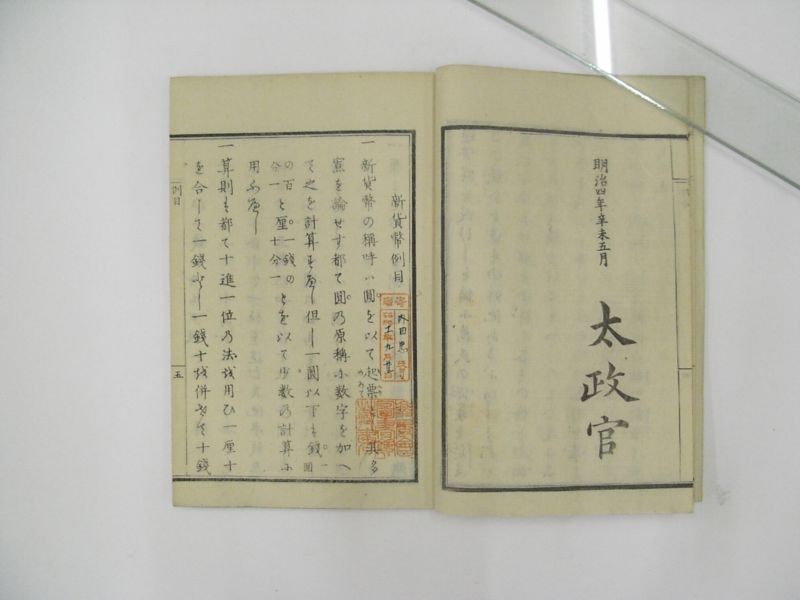 明治四年辛未五月
太政官
新貨幣例目
一新貨幣の稱呼ハ圓を以て起票とし其多
寡を論せす都て圓の原稱に数字を加へ
て之を計算すへし但し一圓以下ハ錢
の百分一と厘一錢の十分一とを以て少数の計算に
用ふへし
一算則ハ都て十進一位の法を用ひ一厘十
を合して一錢とし一錢十を併せて十錢
例目
五